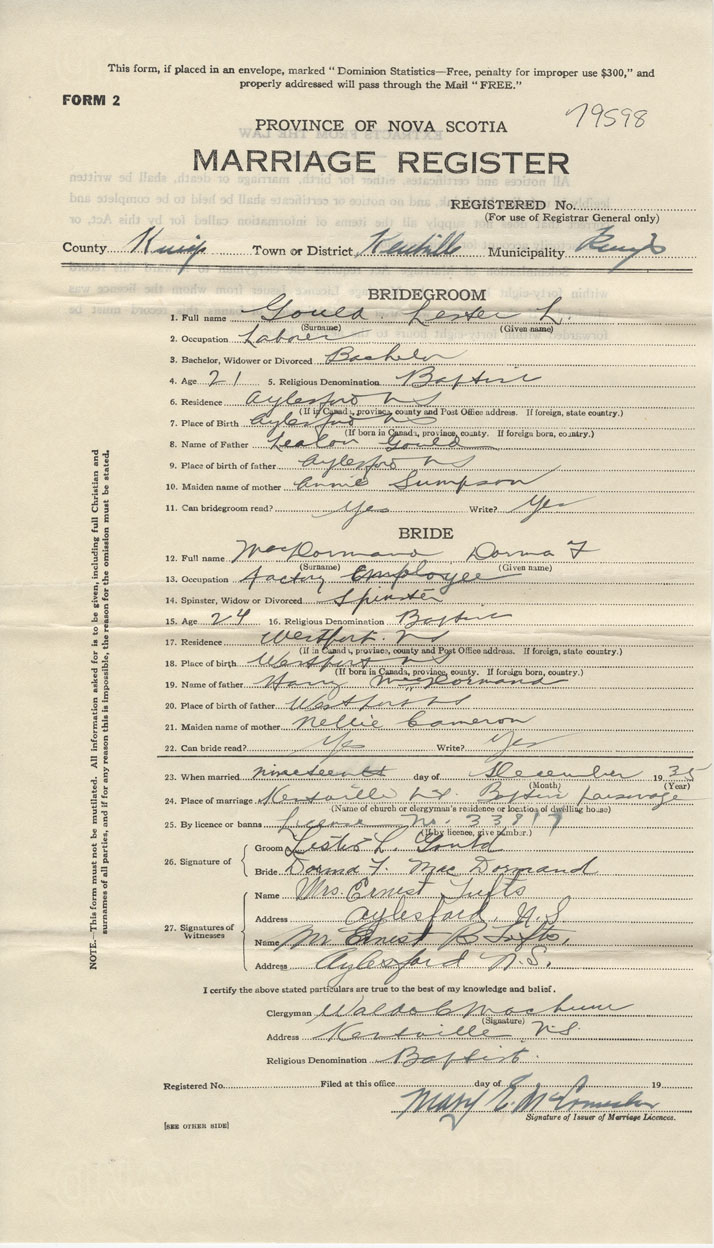 This form, if placed in an envelope, marked “ Dominion Statistics—Free, penalty for improper use $300,” and
properly addressed will pass through the Mail “ FREE.”
FORM 2
79598
PROVINCE OF NOVA SCOTIA
MARRIAGE REGISTER
REGISTERED No.
(For use of Registrar General only)
County Kings Town or District Kentville Municipality Kings
BRIDEGROOM
1. Full name Gould Lester L.
(Surname) (Given name)
2. Occupation Laborer
3. Bachelor, Widower or Divorced Bachelor
4. Age 21 5. Religious Denomination Baptist
6. Residence Aylesford NS
(If in Canada, province, county and Post Office address. If foreign, state country.)
7. Place of Birth Aylesford NS
(If born in Canada, province, county. If foreign born, country.)
8. Name of Father Gould
9. Place of birth of father Aylesford NS
10. Maiden name of mother Annie
11. Can bridegroom read? Yes Write? Yes
BRIDE
12. Full name MacDormand Dorma F
(Surname) (Given name)
13. Occupation Factory Employee
14. Spinster, Widow or Divorced Spinster
15. Age 24 16. Religious Denomination Baptist
17. Residence Westport. NS
(If in Canada, province, county and Post Office address. If foreign, state country.)
18. Place of birth Westport NS
(If born in Canada, province, county. If foreign born, country.)
19. Name of father Harry MacDormand
20. Place of birth of father Westport NS
21. Maiden name of mother Nellie Cameron
22. Can bride read? Yes Write? Yes
23. When married nineteenth day of December 1935
(Month) (Year)
24. Place of marriage Kentville NS. Baptist parsonage
(Name of church or clergyman's residence or location of dwelling house)
25. By licence or banns License No. 33817
(If by licence, give number.)
26. Signature of
Groom Lester L. Gould
Bride Dorma F. Mac Dormand
27. Signatures of Witnesses
Name Mrs. Ernest Tufts
Address Aylesford, N.S.
Name Mr Ernest B Tufts,
Address Aylesford N.S.
I certify the above stated particulars are true to the best of my knowledge and belief.
Clergyman Waldo C Machum
(Signature)
Address Kentville NS.
Religious Denomination Baptist.
Registered No. Filed at this office day of 19
Mary E.
Signature of Issuer of Marriage Licences.
[SEE OTHER SIDE]
NOTE.—This form must not be mutilated. All information asked for is to be given, including full Christian and
surnames of all parties, and if for any reason this is impossible, the reason for the omission must be stated.